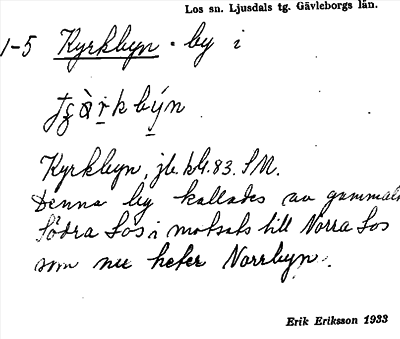 Los sn. Ljusdals tg. Gävleborgs län.
1-5 Kyrkbyn. by i
Kyrkbyn, jb. kbl. 83. SM.
Denna by kallades av gammalt
Södra Los i motsats till Norra Los
som nu heter Norrbyn.
Erik Eriksson 1933